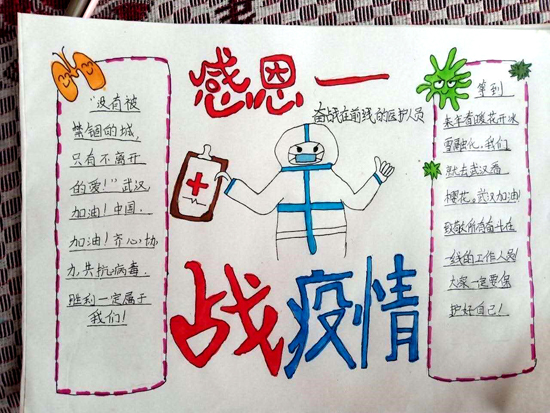 感恩一
奋战在前线的医护人员
"没有被
禁锢的城,
只有不离开
的爱!"武汉
加油!中国
加油!齐心协
力,共抗病毒,
胜利一定属于
我们!
等到
来年春暖花开冰
雪融化,我们
就去武汉看
樱花。武汉加油!
致敬所有奋斗在
一线的工作人员!
大家一定要保
护好自己!
战疫情